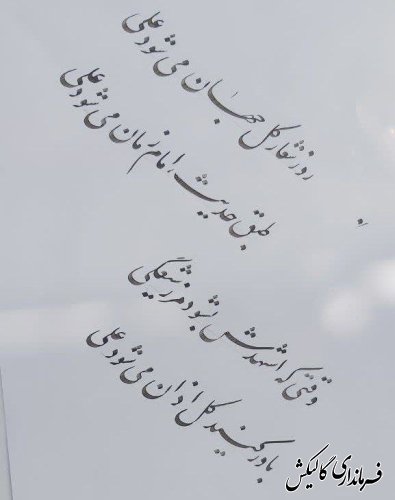 روز شعار کل جهان می شود علی
طبق حدیث امام زمان می شود علی
وقتی که اشهدش بشود مرز شیعگی
باور کنید کل اذان می شود علی
فرمانداری گالیکش